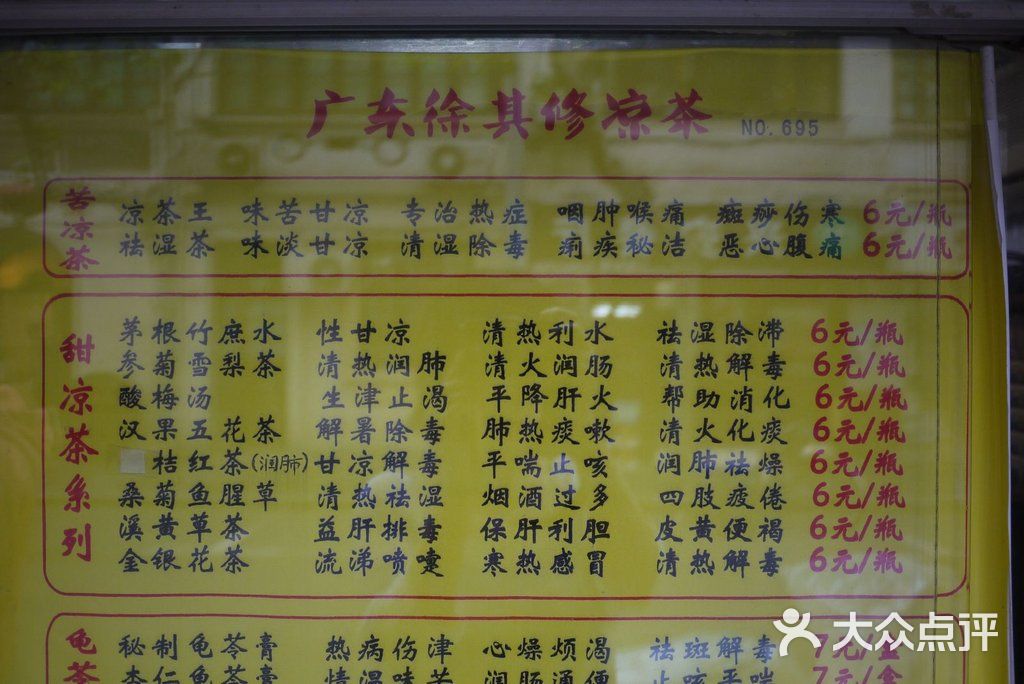 广东徐其修凉茶 NO. 695
苦凉茶
凉茶王 味苦甘凉 专治热症 咽肿喉痛 癍痧伤寒 6元/瓶
祛湿茶 味淡甘凉 清湿除毒 痢疾秘洁 恶心腹痛 6元/瓶
甜凉茶系列
茅根竹庶水 性甘凉 清热利水 祛湿除滞 6元/瓶
参菊雪梨茶 清热润肺 清火润肠 清热解毒 6元/瓶
酸梅汤 生津止渴 平降肝火 帮助消化 6元/瓶
汉果五花茶 解暑除毒 肺热痰嗽 清火化痰 6元/瓶
桔红茶(润肺) 甘凉解毒 平喘止咳 润肺祛燥 6元/瓶
桑菊鱼腥草 清热祛湿 烟酒过多 四肢疲倦 6元/瓶
溪黄草茶 益肝排毒 保肝利胆 皮黄便褐 6元/瓶
金银花茶 流涕喷嚏 寒热感冒 清热解毒 6元/瓶
龟苓
秘制龟苓膏 热病伤津 心燥烦渴 祛斑解毒 7元/盒
杏仁龟苓膏 润肠通便 止咳平喘 7元/盒
大众点评